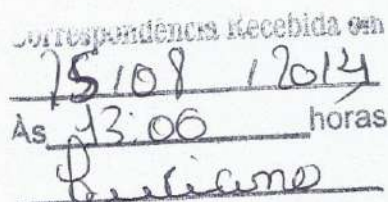 Correspondência Recebida em
15/08/2014
Às 13:06 horas
Luciano